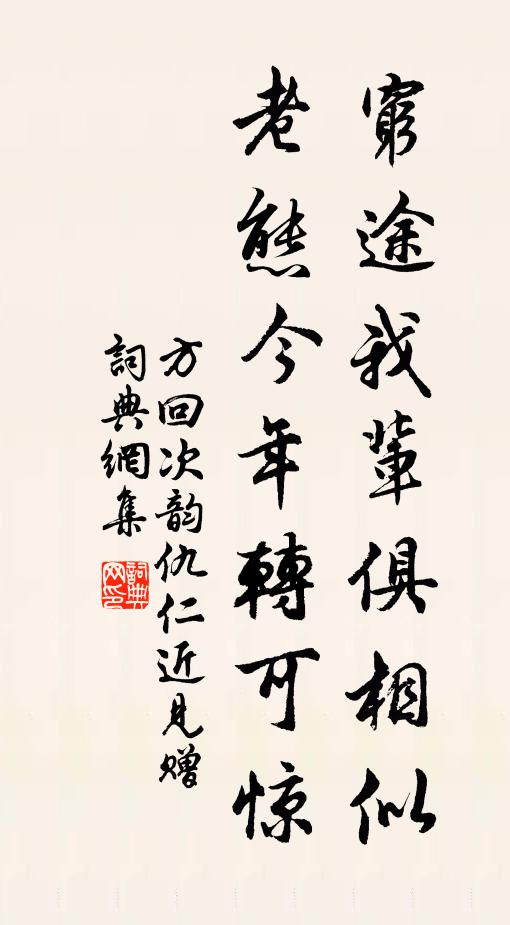 窮途我輩俱相似
老態今年轉可惊
方回次韵仇仁近見贈
詞典網集
詞典網印